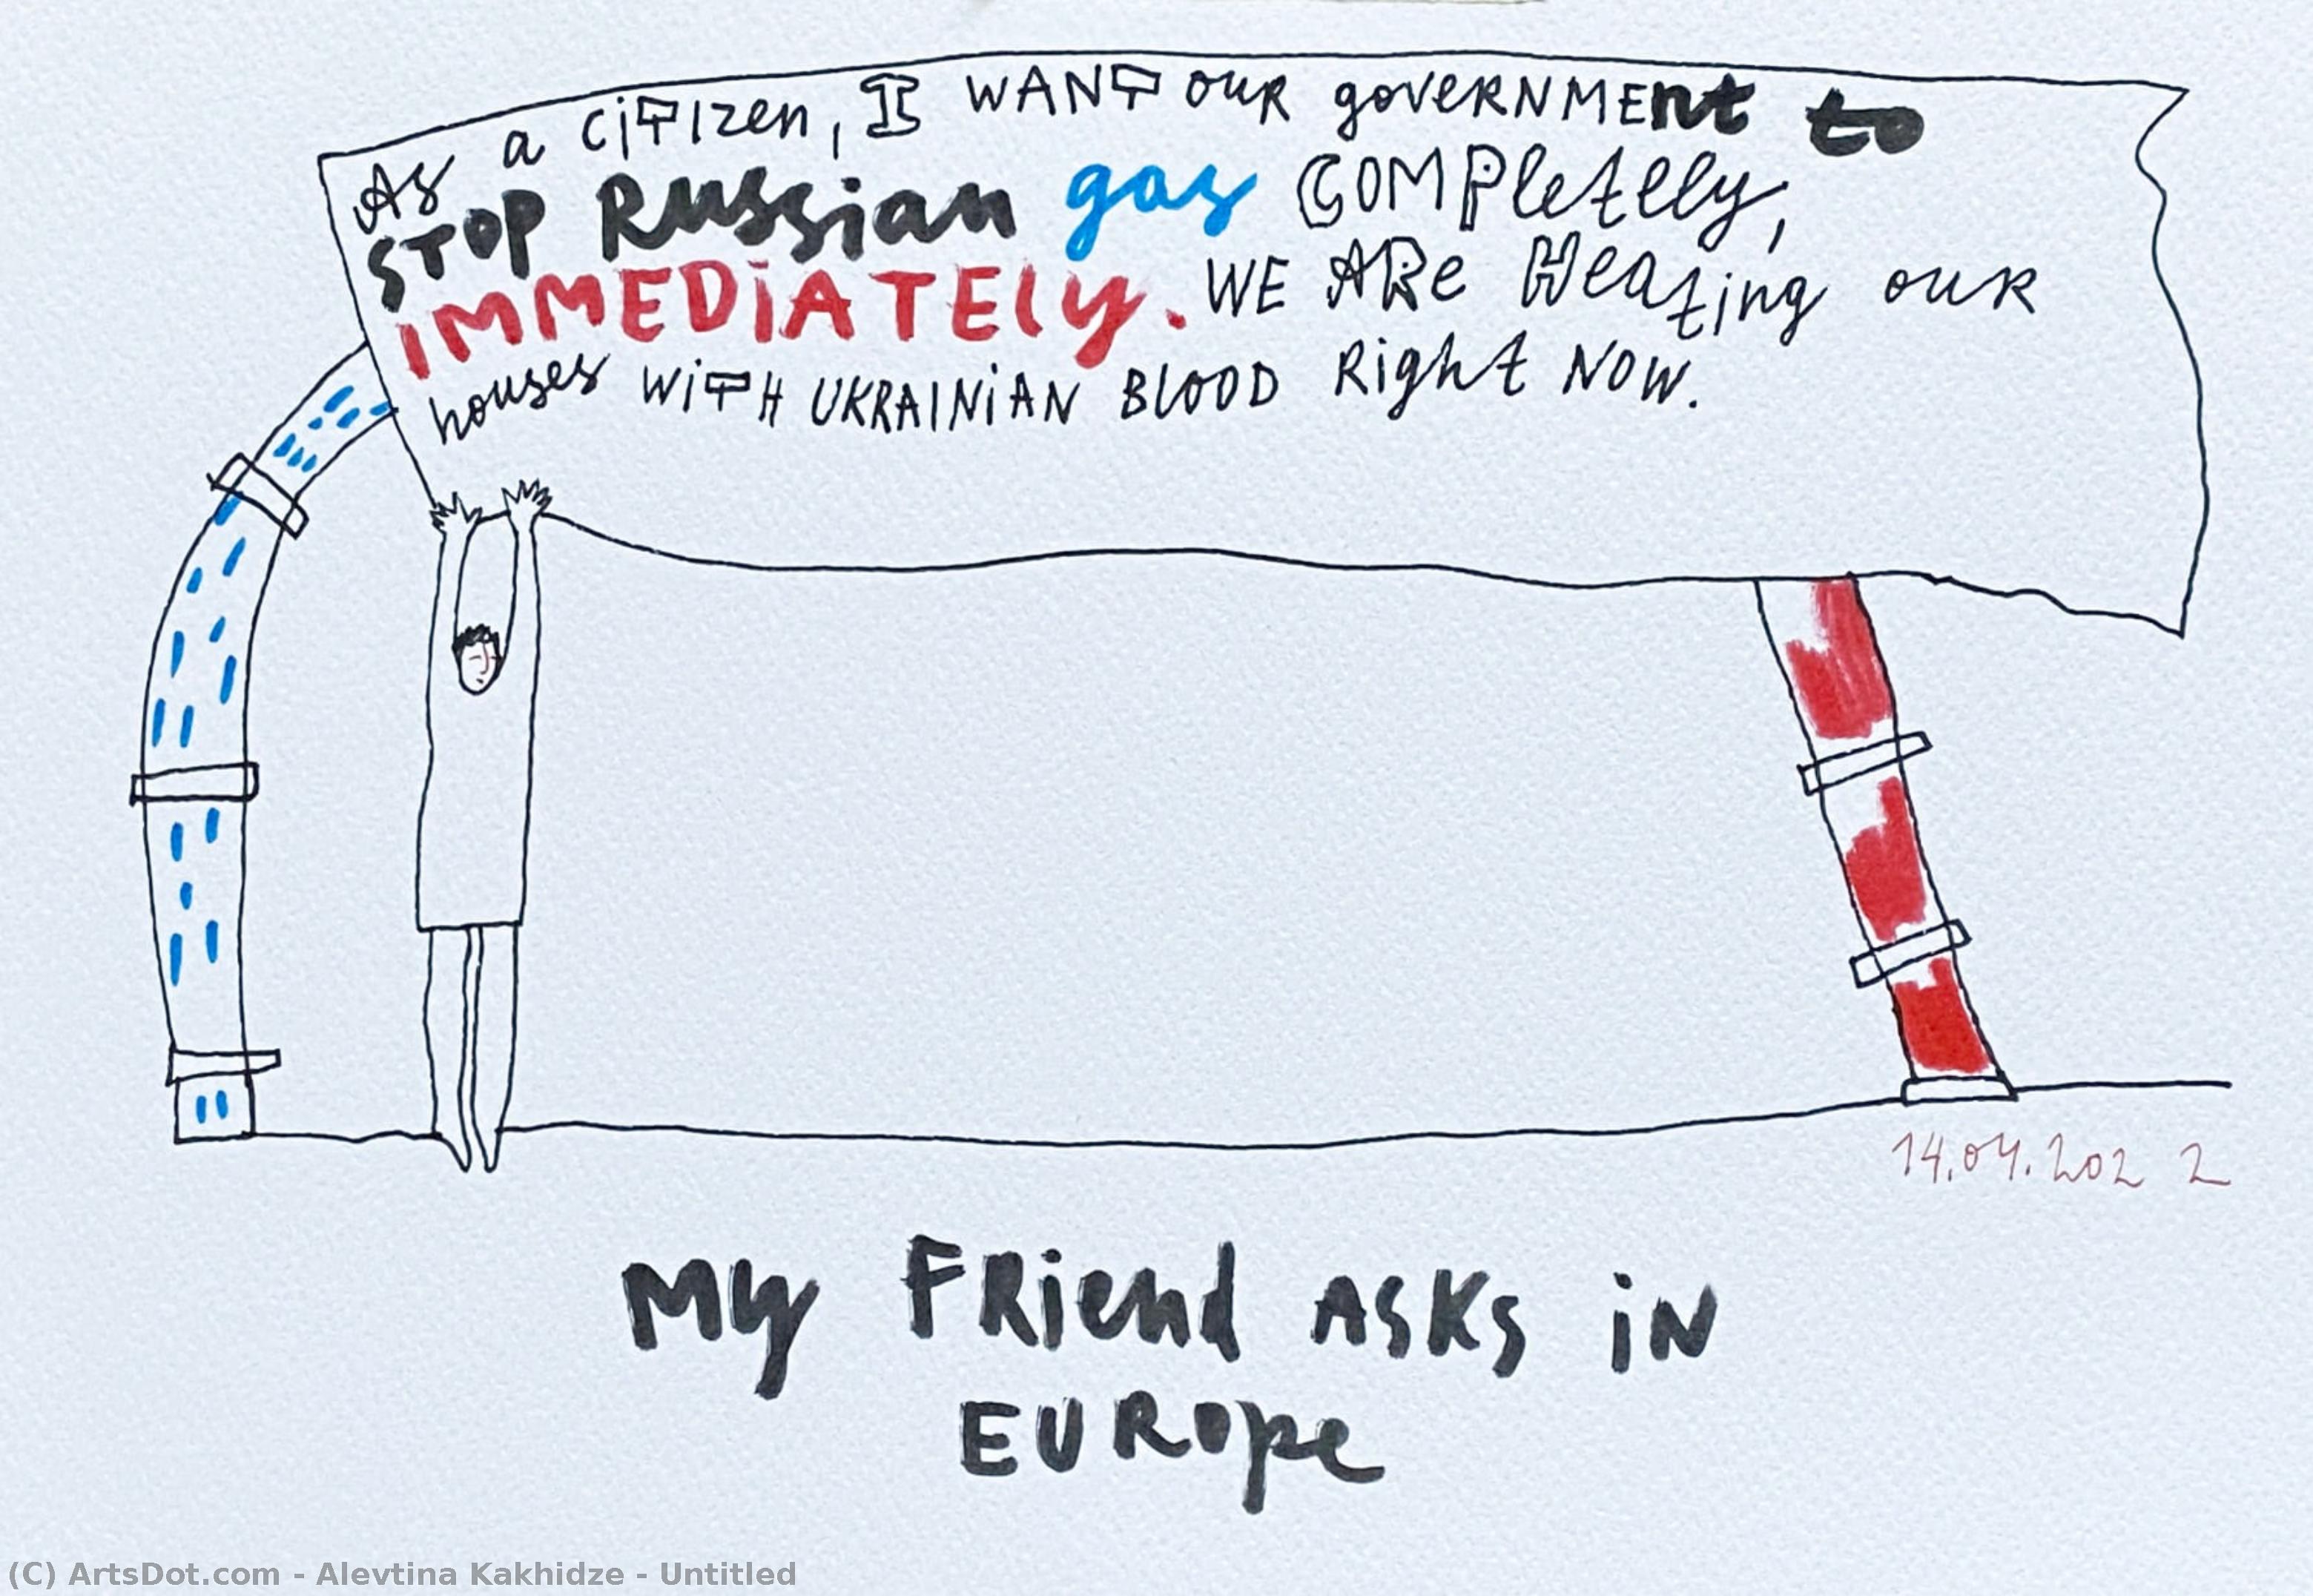 As a citizen, I WANT our goveRNMEnt to
STOP Russian gas COMPletely,
iMMEDiATEly. WE ARe Heating ouR
houses WiTH UKRAINiAN BlOOD Right NOW.
14.04.2022
My FRiend ASKS iN
EURope
(C) ArtsDot.com - Alevtina Kakhidze - Untitled